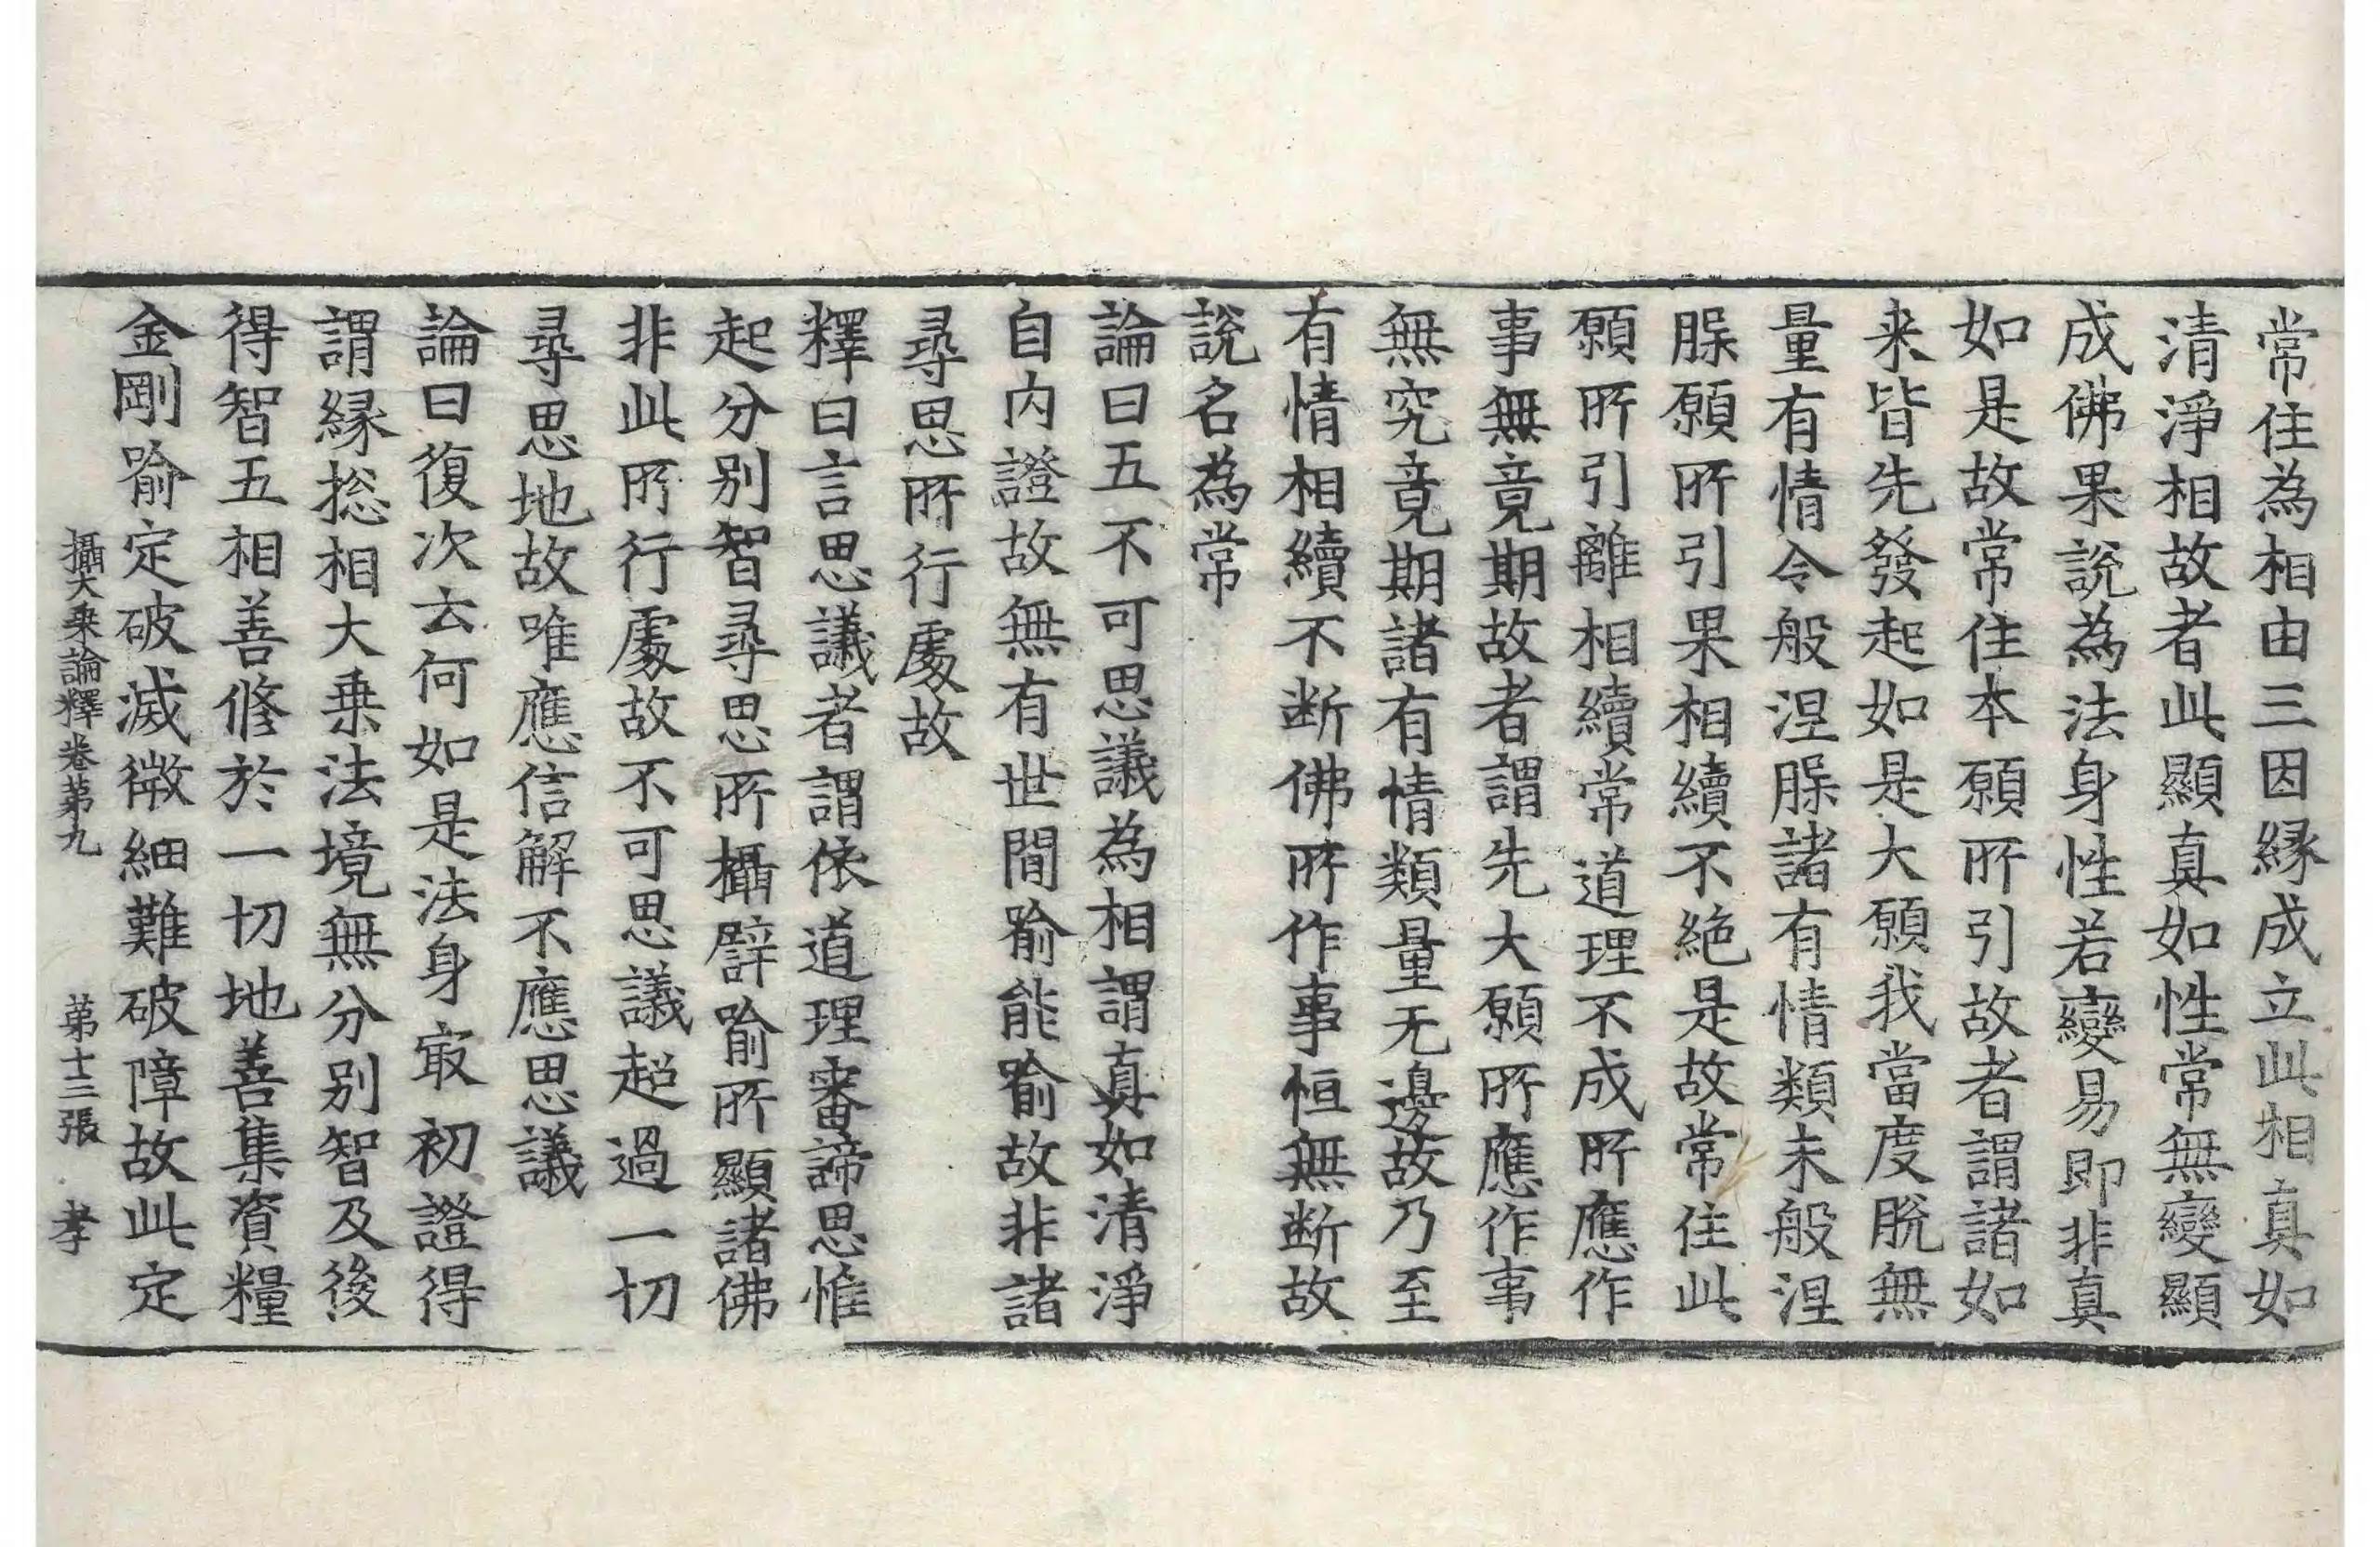 常住為相由三因縁成立此相真如
清淨相故者此顯真如性常無變顯
成佛果說為法身性若變易即非真
如是故常住本願所引故者謂諸如
来皆先發起如是大願我當度脫無
量有情令般涅槃諸有情類未般涅
槃願所引果相續不絶是故常住此
願所引離相續常道理不成所應作
事無竟期故者謂先大願所應作事
無究竟期諸有情類量无邊故乃至
有情相續不断佛所作事恒無断故
說名為常
論曰五不可思議為相謂真如清淨
自内證故無有世間喻能喻故非諸
尋思所行處故
釋曰言思議者謂依道理審諦思惟
起分别智尋思所攝譬喻所顯諸佛
非此所行處故不可思議超過一切
尋思地故唯應信解不應思議
論曰復次云何如是法身㝡初證得
謂縁揔相大乗法境無分别智及後
得智五相善修於一切地善集資糧
金剛喻定破滅微細難破障故此定
攝大乗論釋卷第九　第十三張　孝